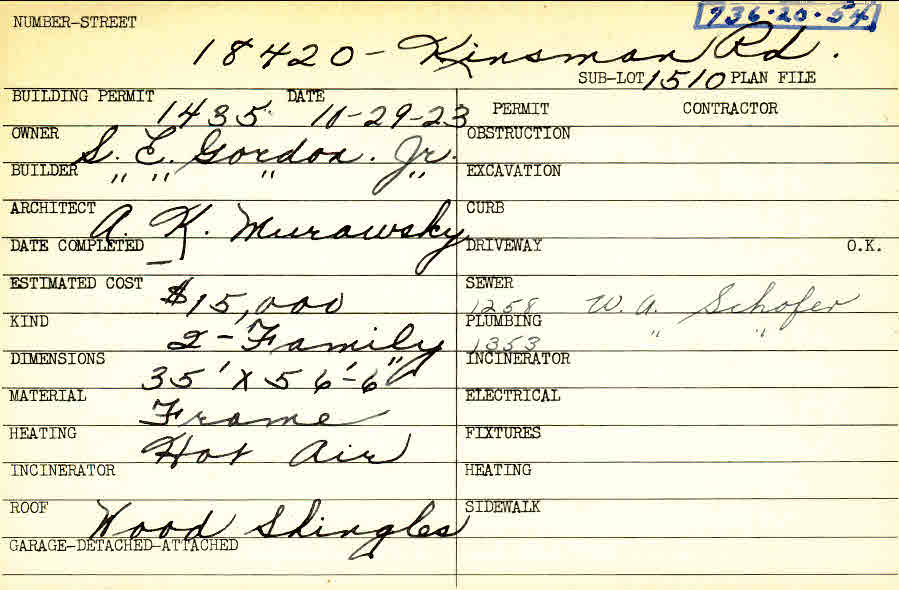 NUMBER-STREET
736-20-54
18420- Kinsman Rd.
SUB-LOT 1510 PLAN FILE
BUILDING PERMIT 1435 DATE 10-29-23
PERMIT CONTRACTOR
OWNER S. E. Gordon. Jr.
OBSTRUCTION
BUILDER " " " "
EXCAVATION
ARCHITECT A. K. Murawsky
CURB
DATE COMPLETED —
DRIVEWAY O.K.
ESTIMATED COST $15,000
SEWER 1258 W. A. Schofer
KIND 2-Family
PLUMBING 1353 " "
DIMENSIONS 35' X 56'-6"
INCINERATOR
MATERIAL Frame
ELECTRICAL
HEATING Hot Air
FIXTURES
INCINERATOR
HEATING
ROOF Wood Shingles
SIDEWALK
GARAGE-DETACHED-ATTACHED